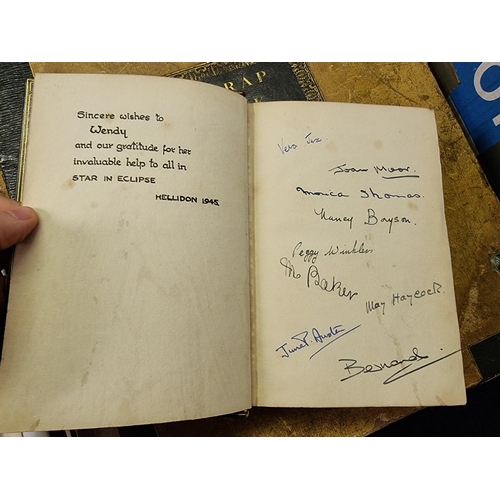 RAP
Sincere wishes to
Wendy
and our gratitude for her
invaluable help to all in
STAR IN ECLIPSE
HELLIDON 1945.
Vera
Joan Moor.
Monica Thomas.
Nancy Boyson.
Peggy Winkless
Mo Baker
May Haycock.
June P. Austin
Bernard.